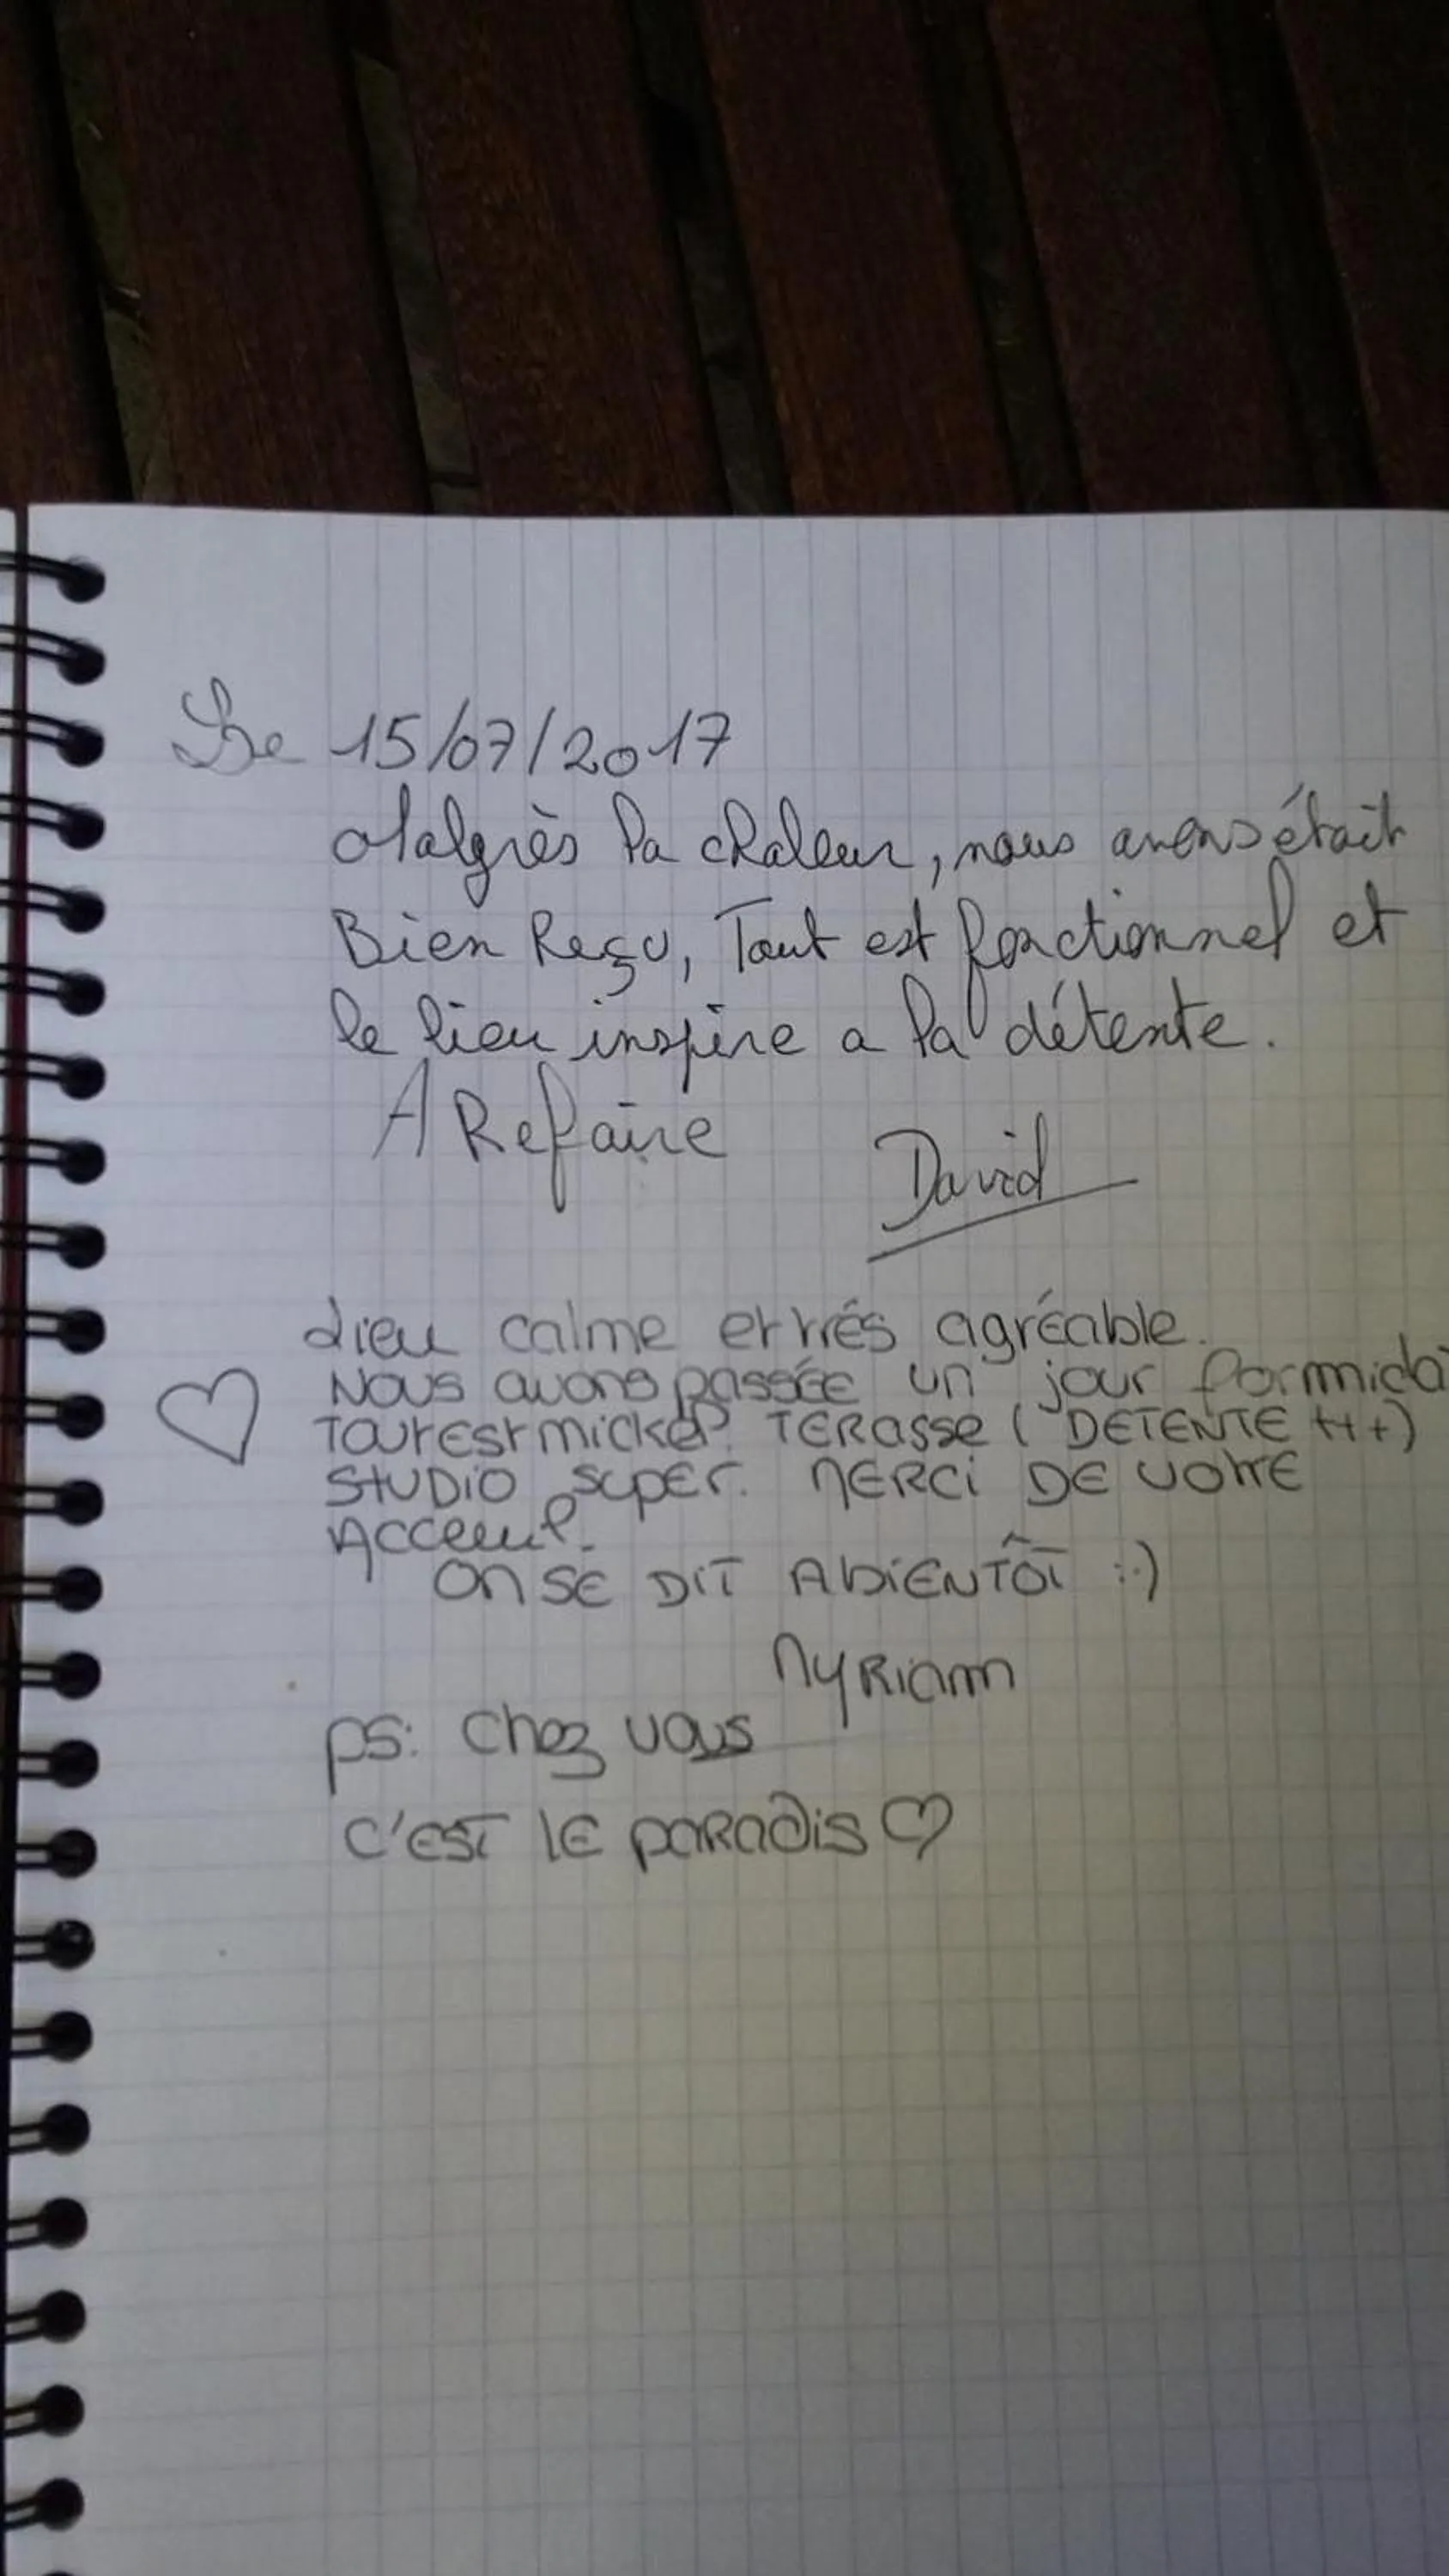 Le 15/07/2017
Malgrès la chaleur, nous avons était
Bien Reçu, Tout est fonctionnel et
le lieu inspire a la détente.
A Refaire
David
Lieu calme et trés agréable.
NOUS avons passée un jour formida
Tout est mickel. TERasse ( DETENTE +++)
STUDIO super. MERCi DE VOTRE
Acceuil.
ON SE DIT AbiENTÔT :-)
MyRiam
ps: Chez vous
C'EST LE PARADIS ♡